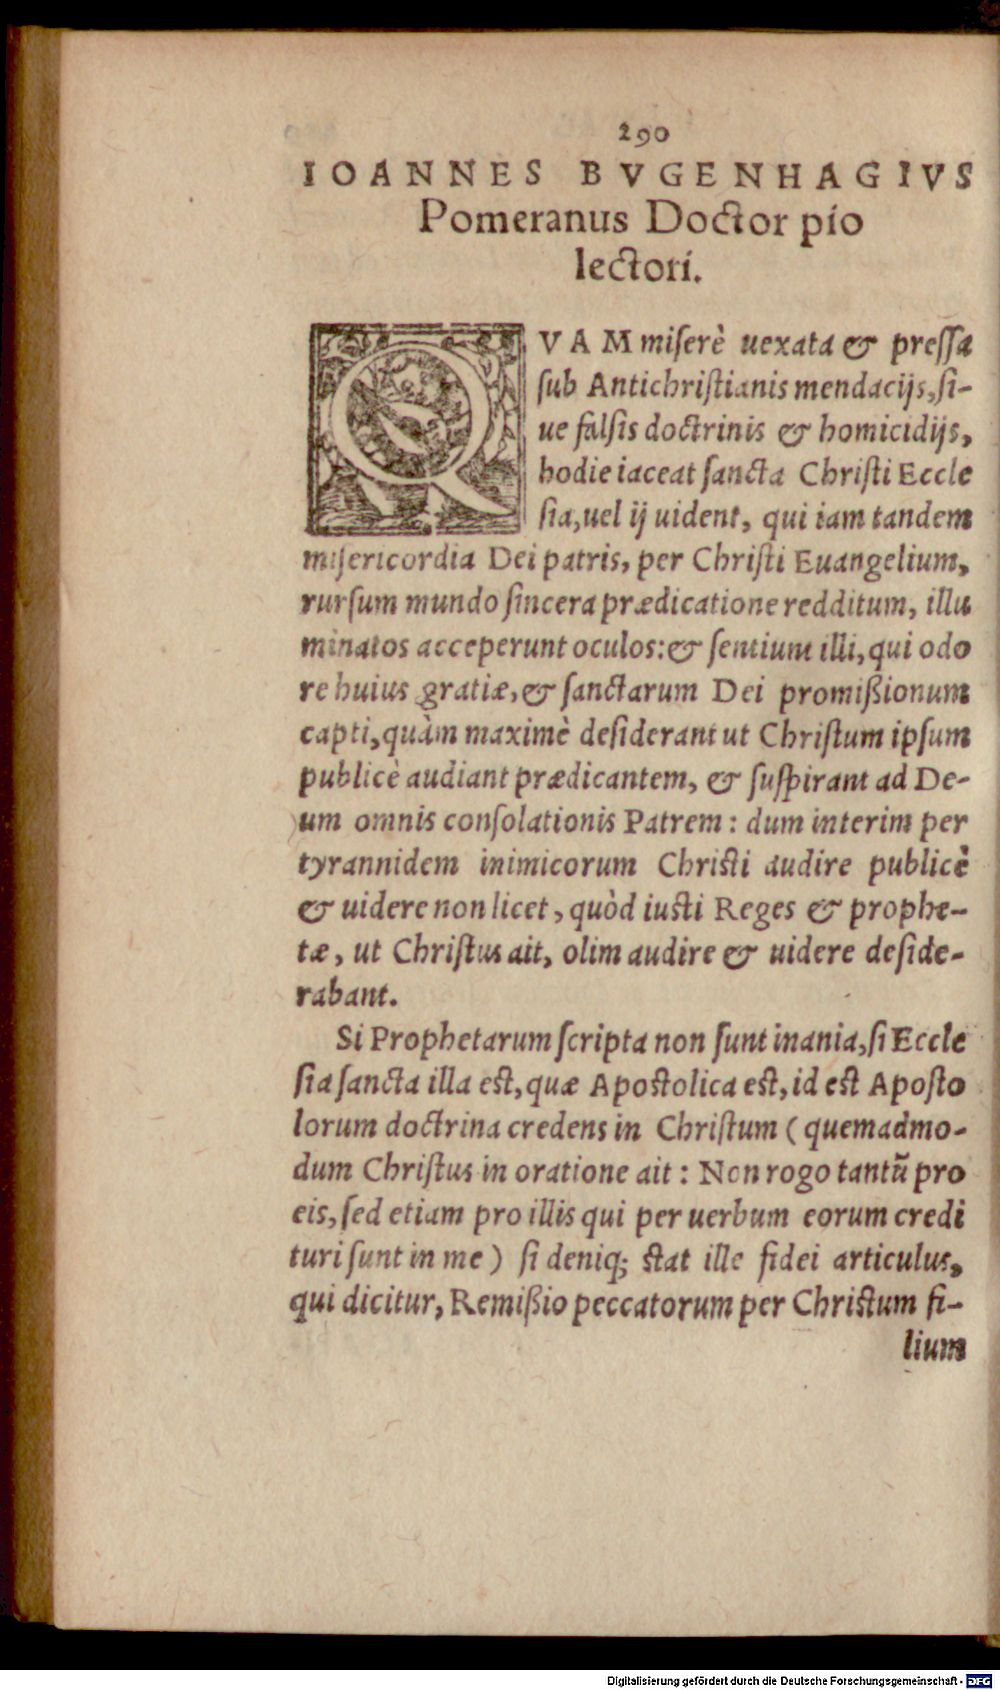 290
IOANNES BVGENHAGIVS
Pomeranus Doctor pio
lectori.
QVAM miſerè uexata & preſſa
ſub Antichriſtianis mendacijs, ſi-
ue falſis doctrinis & homicidijs,
hodie iaceat ſancta Chriſti Eccle
ſia, uel ij uident, qui iam tandem
miſericordia Dei patris, per Chriſti Euangelium,
rurſum mundo ſincera prædicatione redditum, illu
minatos acceperunt oculos: & ſentiunt illi, qui odo
re huius gratiæ, & ſanctarum Dei promißionum
capti, quàm maximè deſiderant ut Chriſtum ipſum
publicè audiant prædicantem, & ſuſpirant ad De-
um omnis conſolationis Patrem: dum interim per
tyrannidem inimicorum Chriſti audire publicè
& uidere non licet, quòd iuſti Reges & prophe-
tæ, ut Chriſtus ait, olim audire & uidere deſide-
rabant.
Si Prophetarum ſcripta non ſunt inania, ſi Eccle
ſia ſancta illa eſt, quæ Apoſtolica eſt, id eſt Apoſto
lorum doctrina credens in Chriſtum (quemadmo-
dum Chriſtus in oratione ait: Non rogo tantũ pro
eis, ſed etiam pro illis qui per uerbum eorum credi
turi ſunt in me) ſi deniq; ſtat ille fidei articulus,
qui dicitur, Remißio peccatorum per Chriſtum fi-
lium
Digitalisierung gefördert durch die Deutsche Forschungsgemeinschaft - DFG